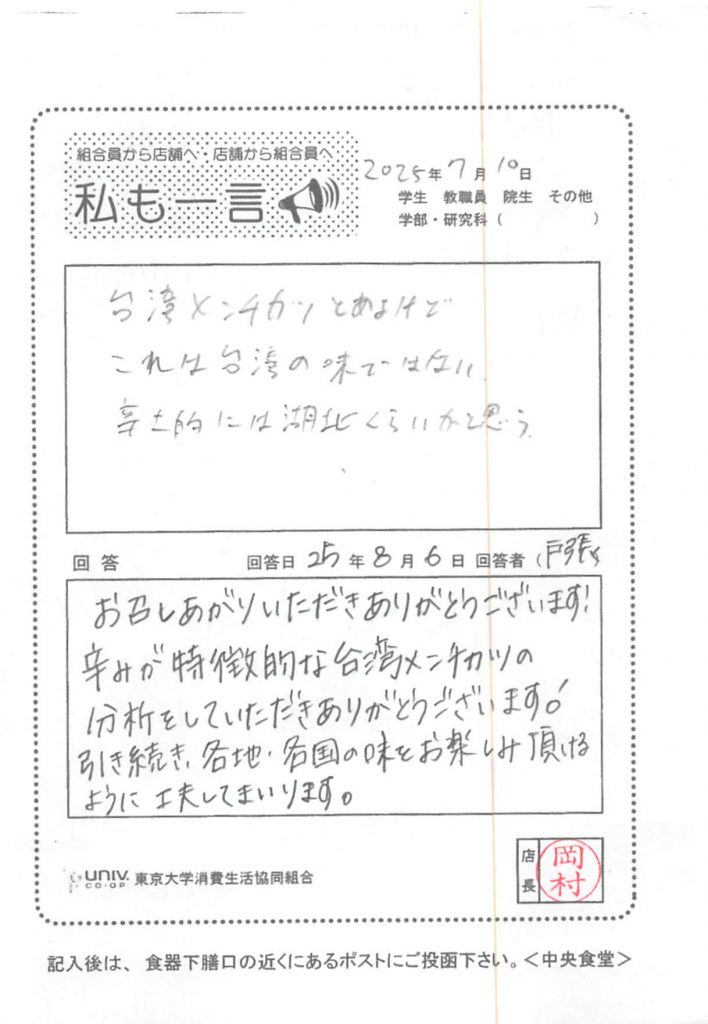 組合員から店舗へ・店舗から組合員へ
私も一言
2025年7月10日
学生 教職員 院生 その他
学部・研究科（ ）
台湾メンチカツとあるけど
これは台湾の味ではない。
辛さ的には湖北くらいかと思う。
回答 回答日 25年8月6日 回答者（戸張）
お召しあがりいただきありがとうございます!
辛みが特徴的な台湾メンチカツの
分析をしていただきありがとうございます!
引き続き、各地・各国の味をお楽しみ頂ける
ように工夫してまいります。
UNIV. CO-OP 東京大学消費生活協同組合
店長 岡村
記入後は、食器下膳口の近くにあるポストにご投函下さい。＜中央食堂＞